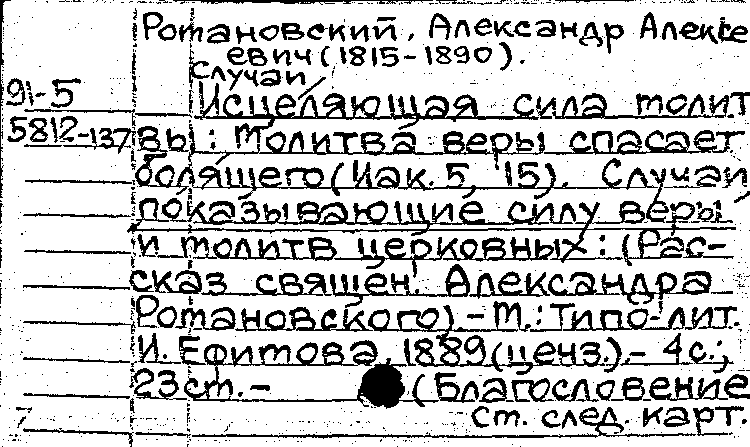 Ротановский, Александр Алексе
евич (1815-1890).
Случаи,
91-5
Исцеляющая сила молит
5812-137
вы: Молитва веры спасает
болящего (Иак. 5, 15). Случаи
показывающие силу веры
и молитв церковных: (Рас-
сказ священ. Александра
Ротановского). - М.: Типо-лит.
И. Ефимова, 1889 (ценз.). - 4 с.;
23 см. - (Благословение
См. след. карт.
7